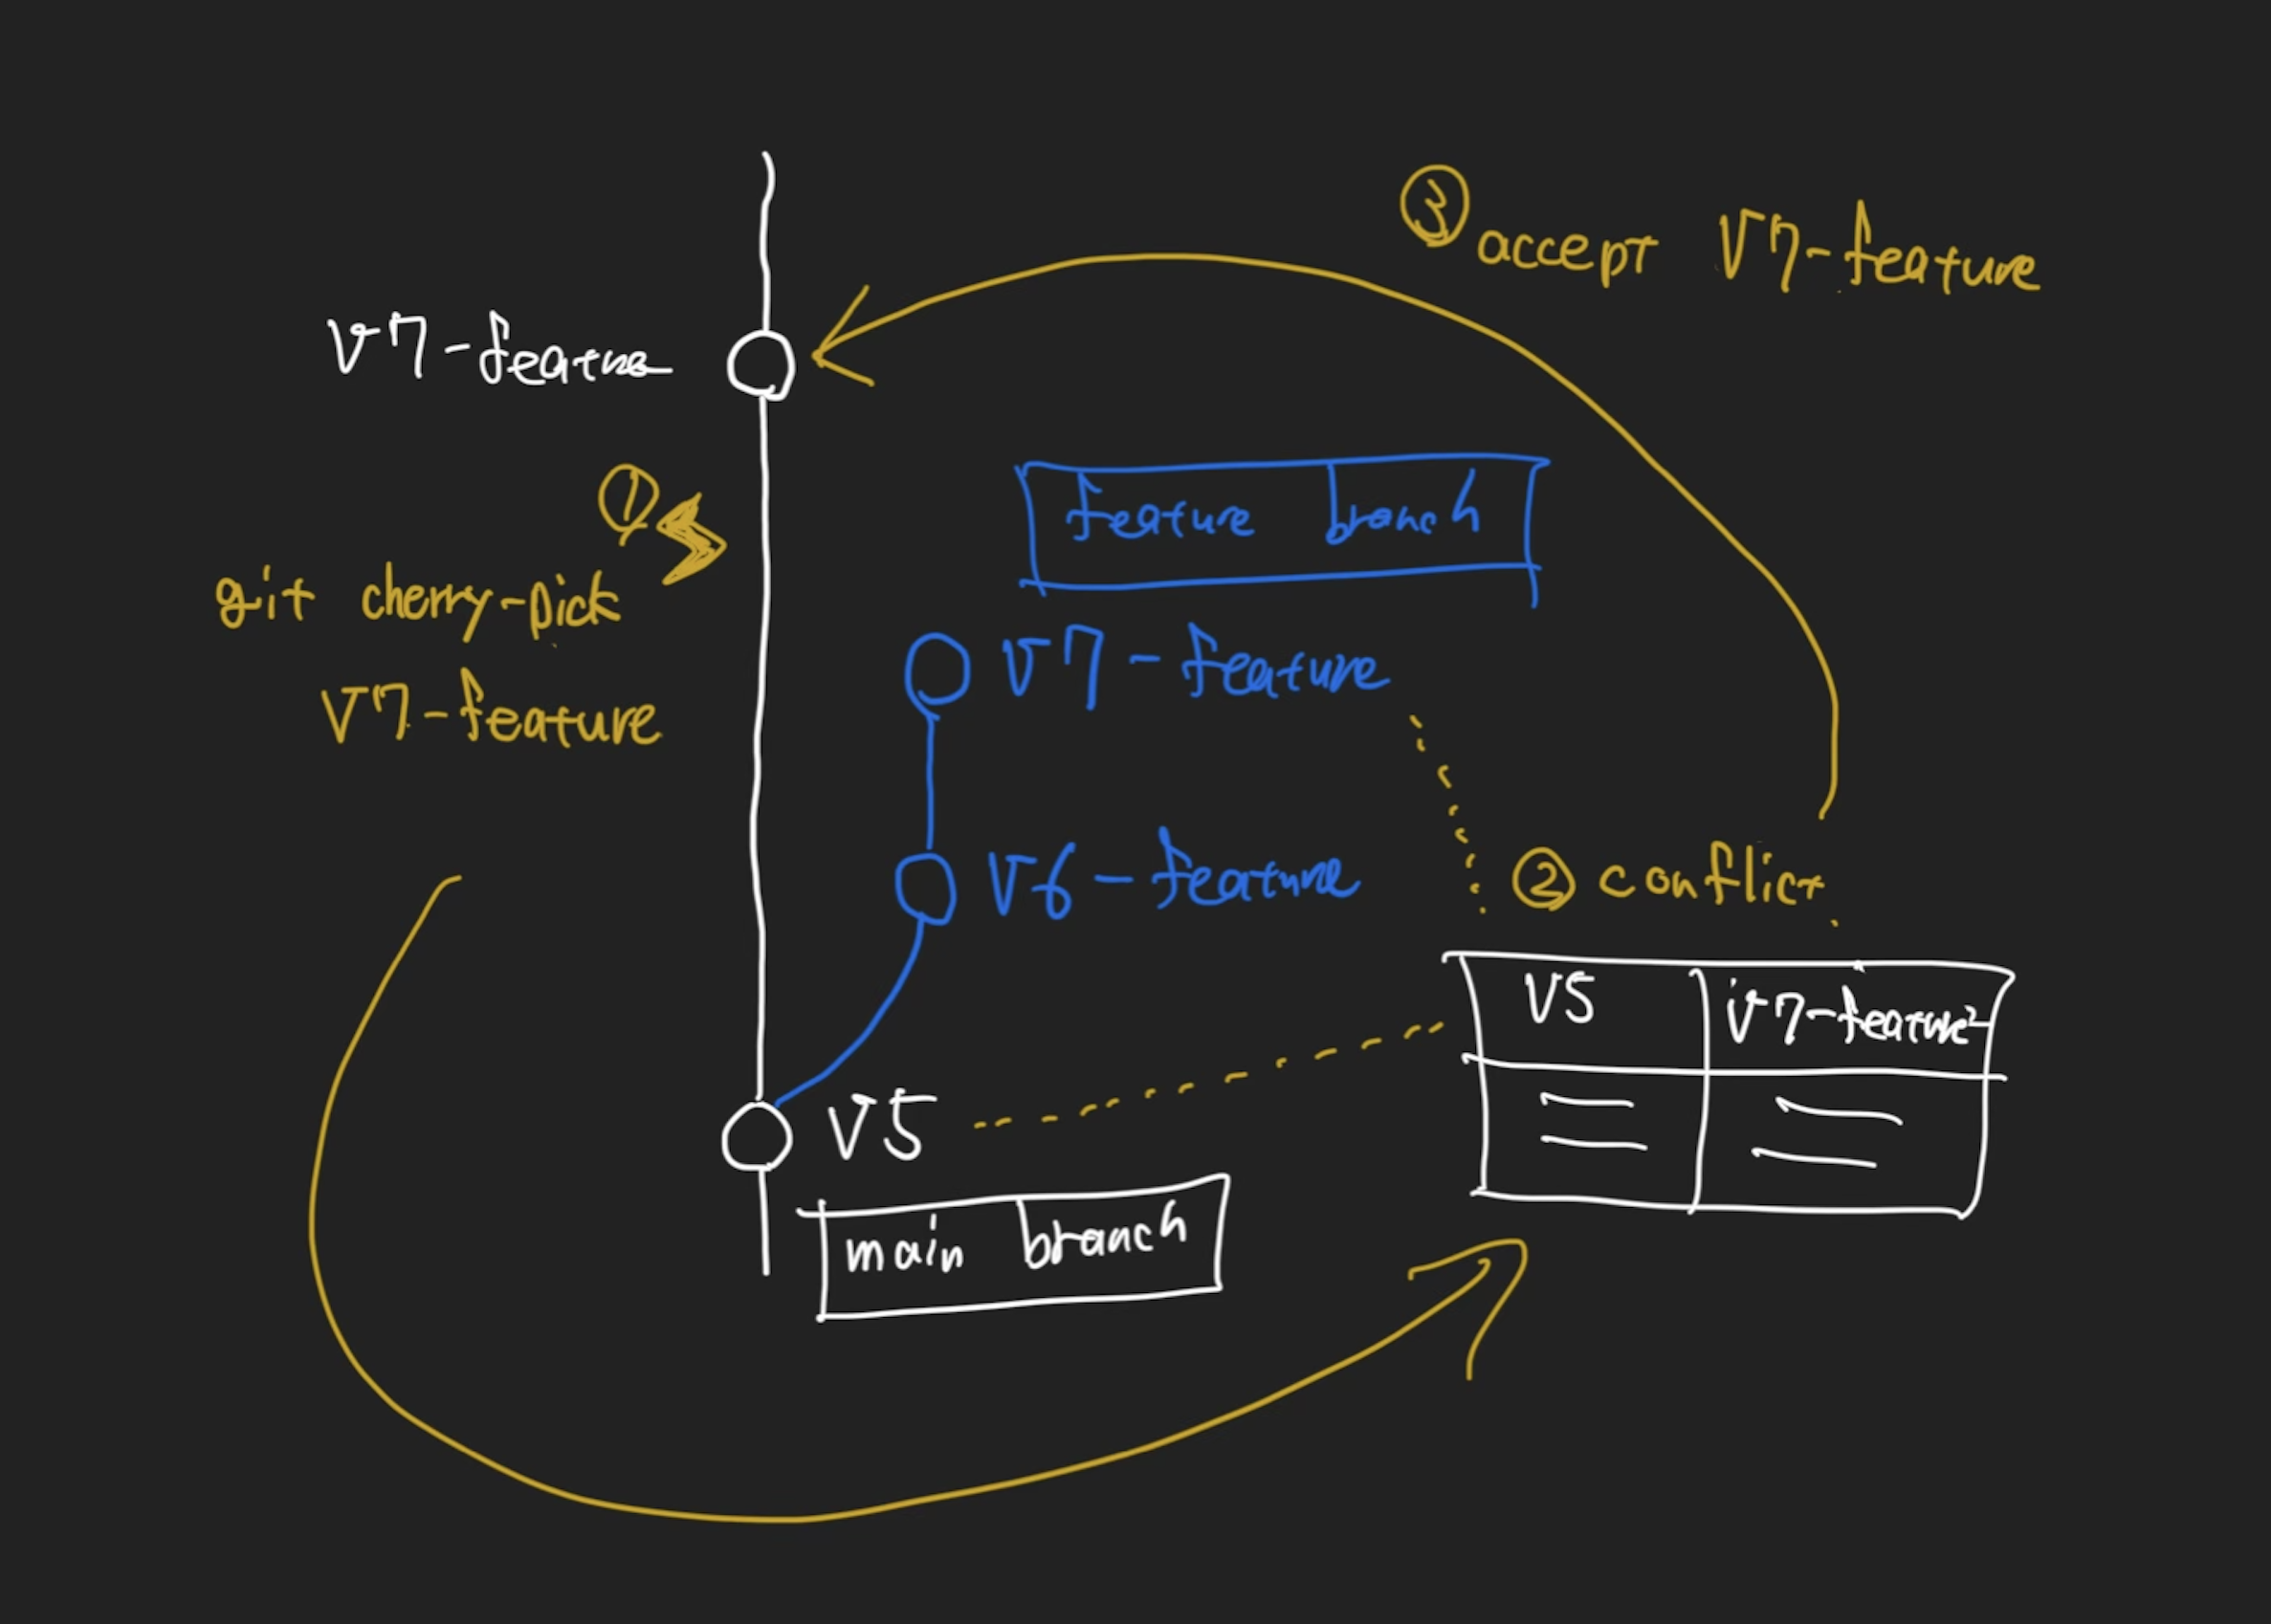 ③ accept V7-feature
V7-feature
①
git cherry-pick
V7-feature
feature branch
V7-feature
V6-feature
② conflict
V5
V7-feature
V5
main branch